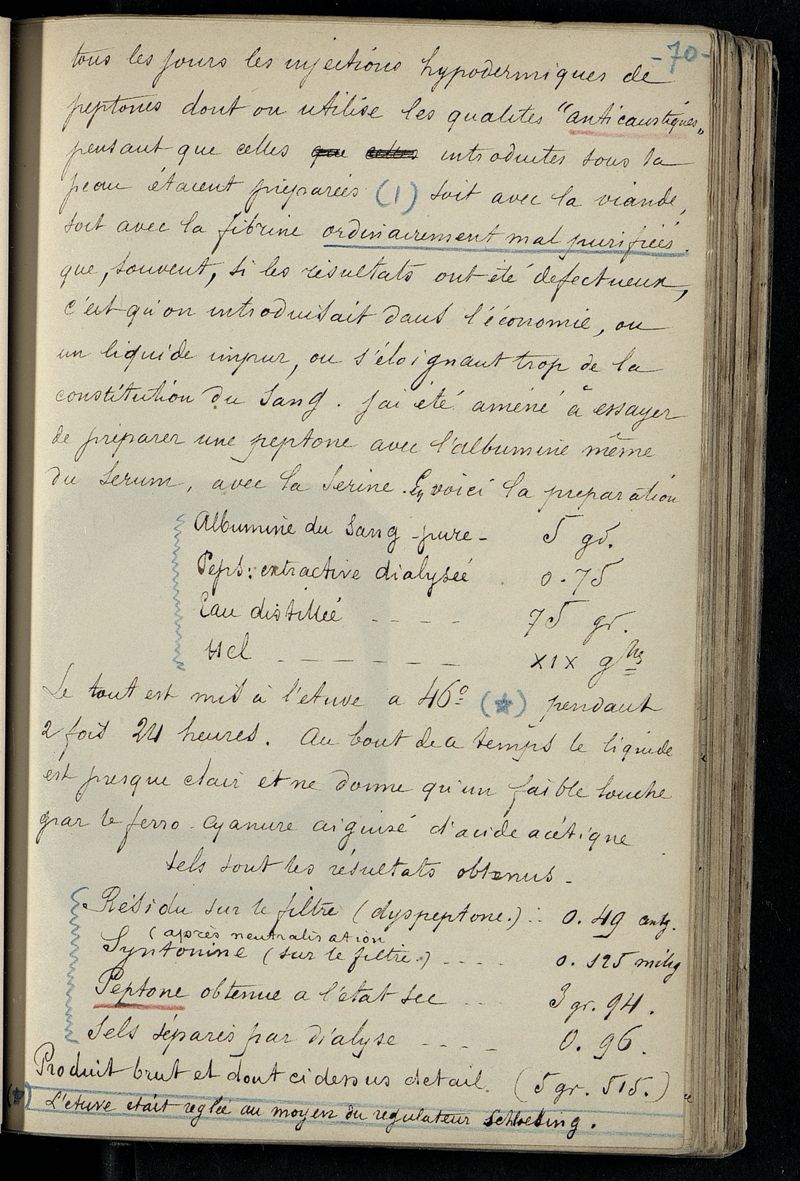 -70-
tous les jours les injections hypodermiques de
peptones dont on utilise les qualites "anticaustiques"
pensant que celles que celles introduites sous la
peau étaient préparées (1) soit avec la viande,
soit avec la fibrine ordinairement mal purifiées.
que, souvent, si les résultats ont été défectueux,
c'est qu'on introduisait dans l'économie, ou
un liquide impur, ou s'éloignant trop de la
constitution du sang. j'ai été amené à essayer
de préparer une peptone avec l'albumine même
du serum, avec la Serine. En voici la preparation
Albumine du Sang - pure - 5 gr.
Peps: extractive dialyseé . 0.75
Eau distilleé - - - - 75 gr.
Hcl - - - - - - XIX gttes
Le tout est mis à l'etuve a 46° (★) pendant
2 fois 24 heures. Au bout de ce temps le liquide
est presque clair et ne donne qu'un faible louche
par le ferro-cyanure aiguisé d'acide acétique
tels sont les résultats obtenus -
Résidu sur le filtre (dyspeptone.) .. 0.49 centg.
(après neutralisation
Syntonine (sur le filtre.) - - - - 0.125 millig
Peptone obtenue a l'état sec - - - 3 gr. 94.
Sels séparés par dialyse - - - - 0.96.
Produit brut et dont cidessus detail. (5 gr. 515.)
(★) L'etuve était regleé au moyen du regulateur Schloesing.